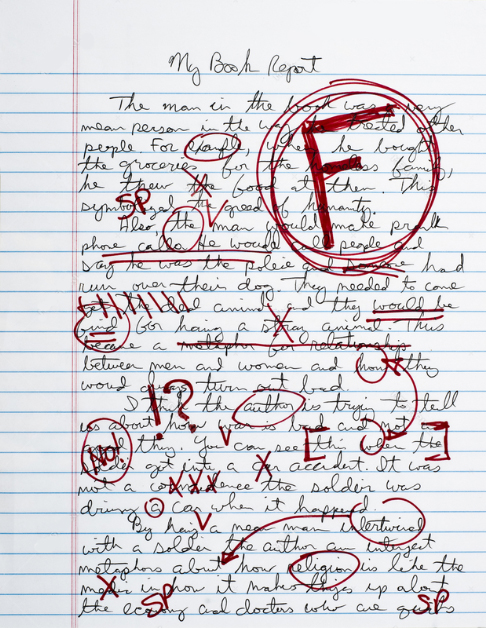 My Book Report
The man in the book was a very
mean person in the way he treated other
people. For exaple, when he bought
the groceries for the homeless family,
he thew the food at them. This
symbolized the greed of humanity.
Also, the man would make prank
phone calls. He would call people and
say he was the police and someone had
run over their dog. They needed to come
get the dead animal and they would be
find for having a stray animal. This
became a metaphor for relationships
between men and women and how they
would always turn out bad.
I think the author is trying to tell
us about how war is bad and not
a good thing. You can see this when the
solder got into a car accident. It was
not a the solder was
driving a car when it happened.
By having a mean man intertwined
with a solder the author can interject
metaphors about how religion is like the
media in how it makes things up about
the economy and doctors who are
F
SP
!?
NO!
SP
SP